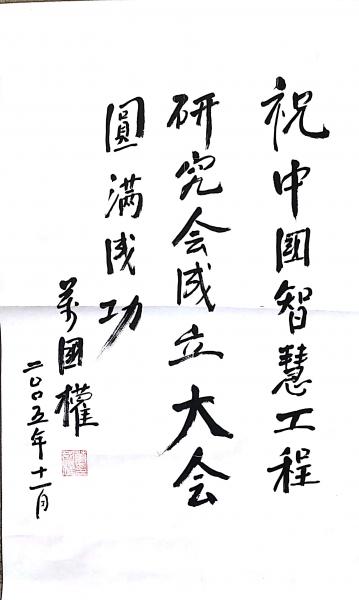 祝中國智慧工程
研究会成立大会
圓满成功
萬國權
二〇〇五年十一月